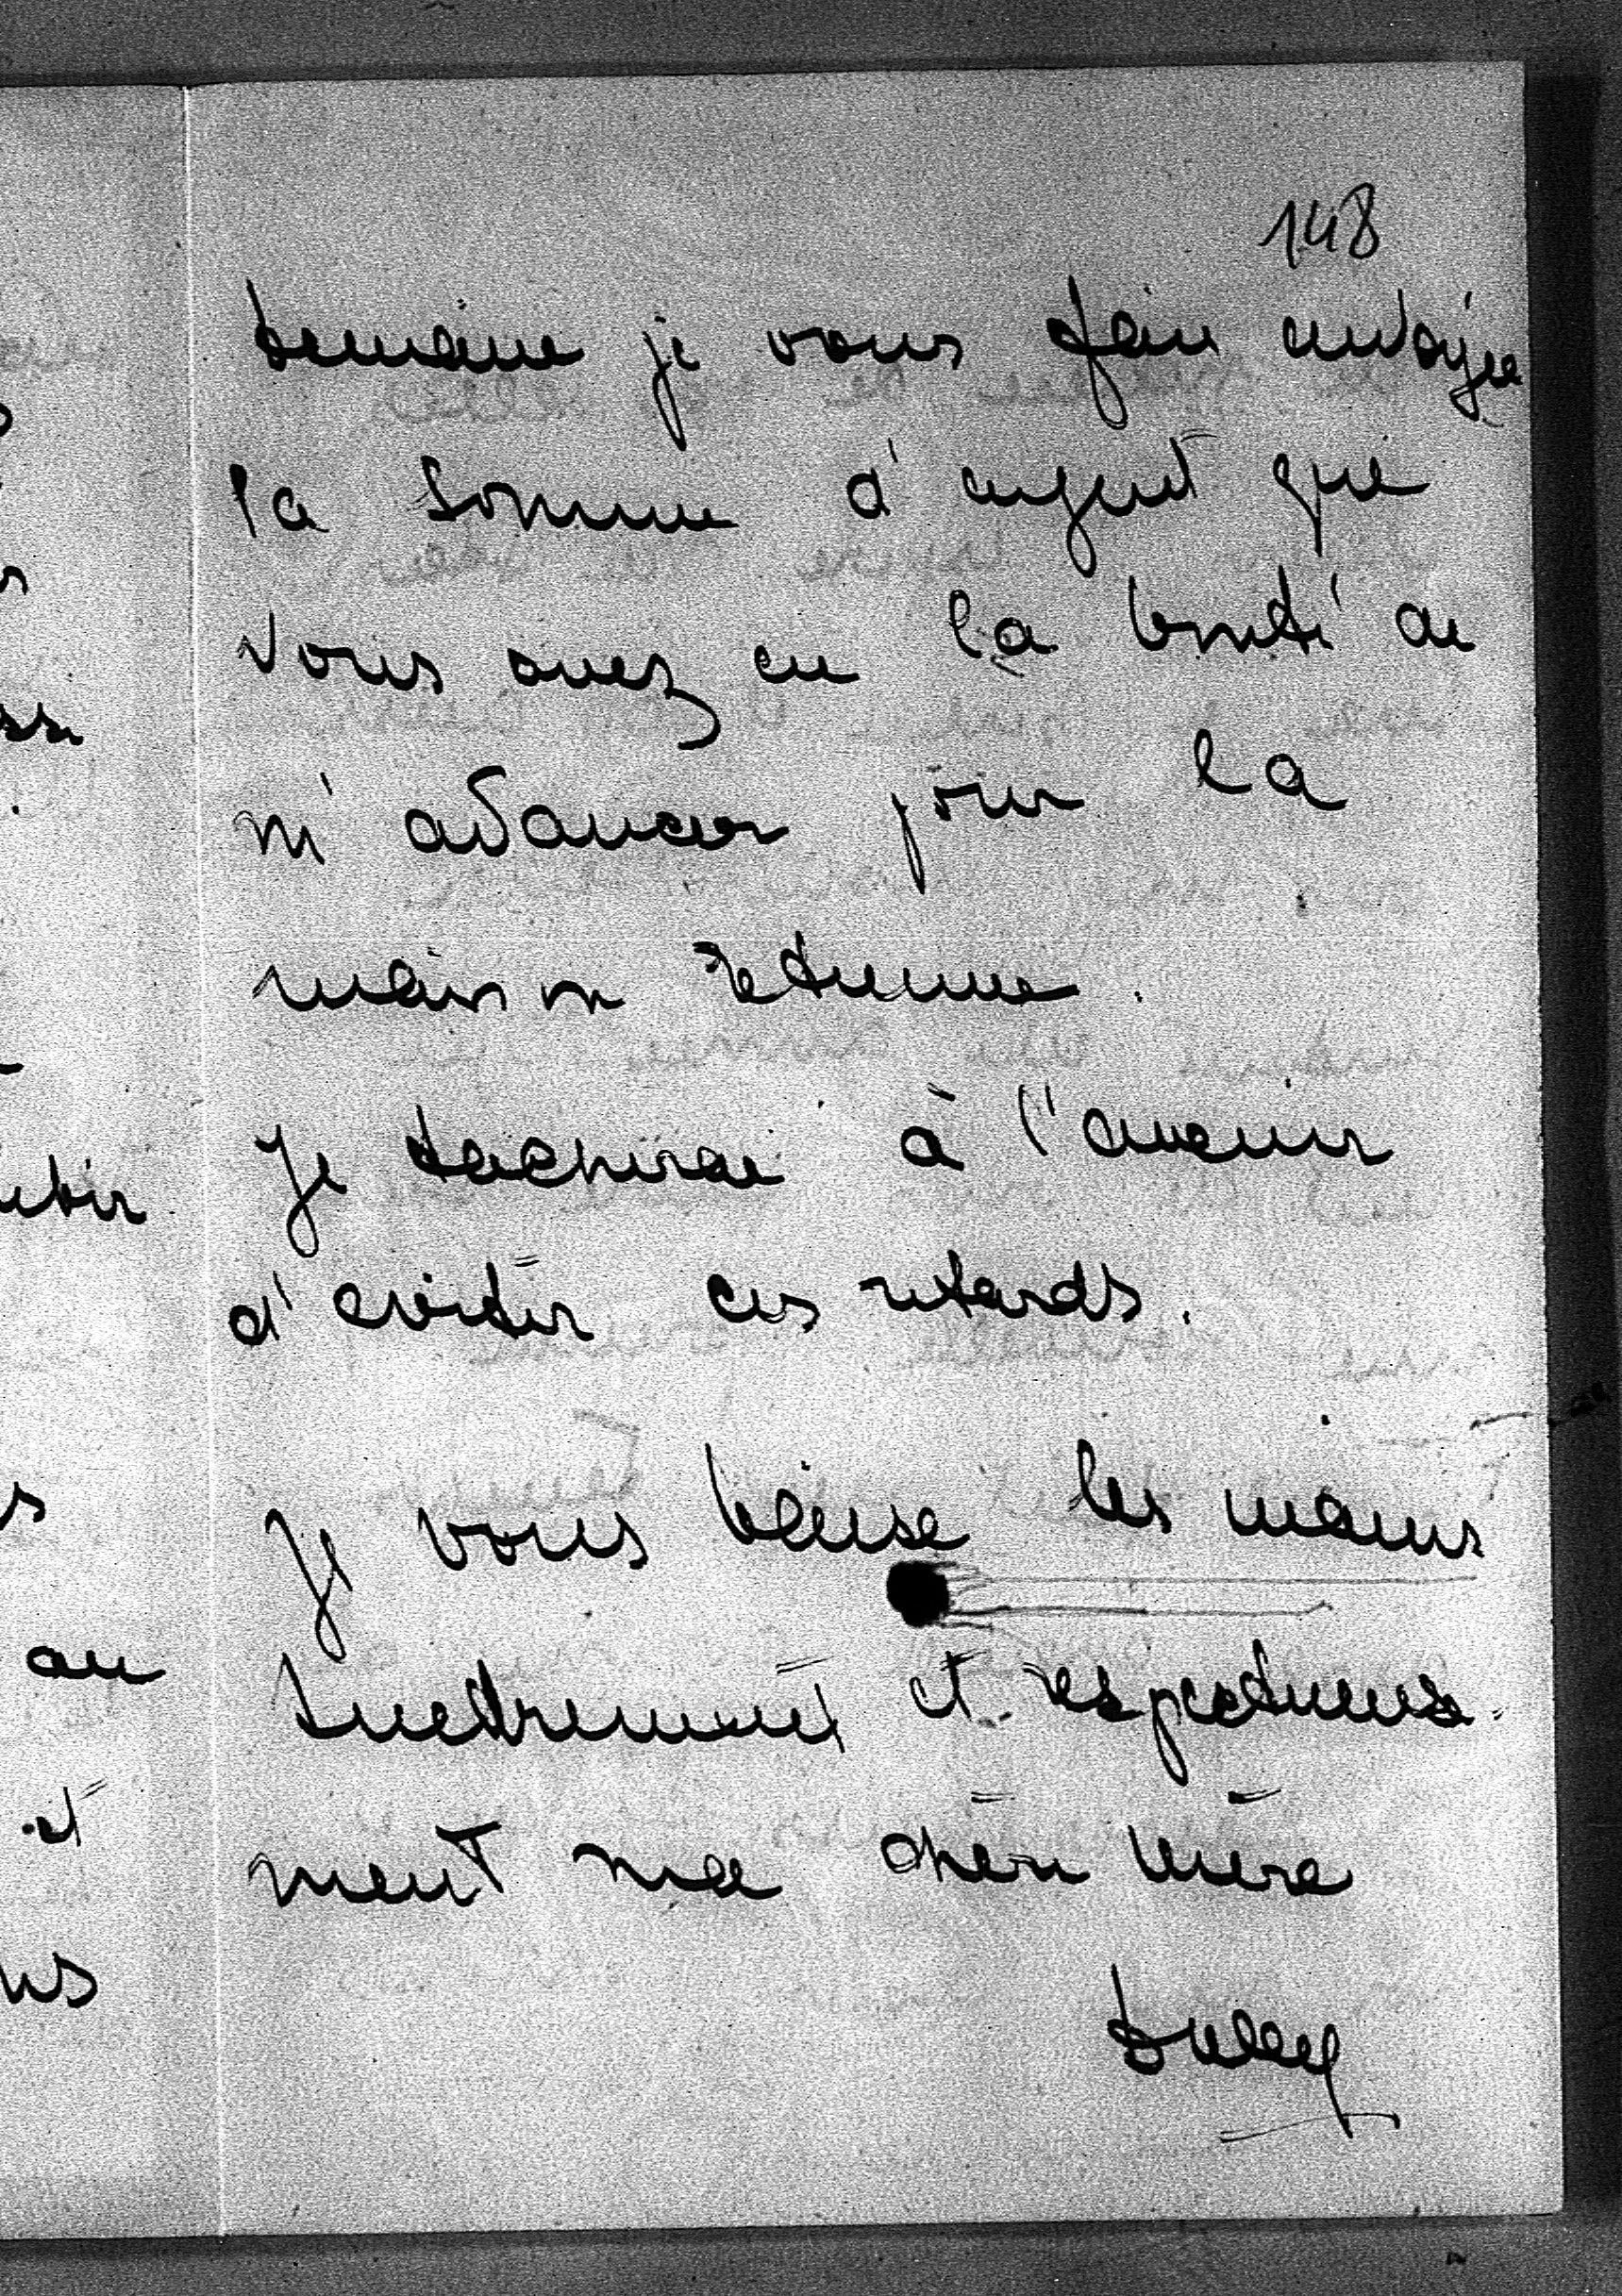 148
semaine je vous fais envoyer
la somme d'argent que
vous avez eu la bonté de
m'avancer pour la
maison
Je tacherai à l'avenir
d'eviter ces retards.
Je vous baise les mains
tendrement et respectueuse
ment ma chère mère
ss
au
et